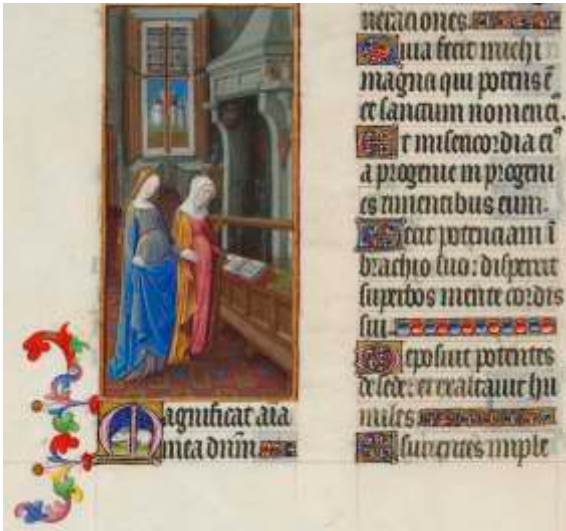 Magnificat aīa
mea dnm̄
neraciones.
Quia fecit michi
magna qui potens ē
et sanctum nomen ei⁹.
Et misericordia ei⁹
a progenie in progeni
es timentibus eum.
Fecit potenciam ī
brachio suo: dispersit
superbos mente cordis
sui.
Deposuit potentes
de sede: et exaltauit hu
miles
Esurientes imple